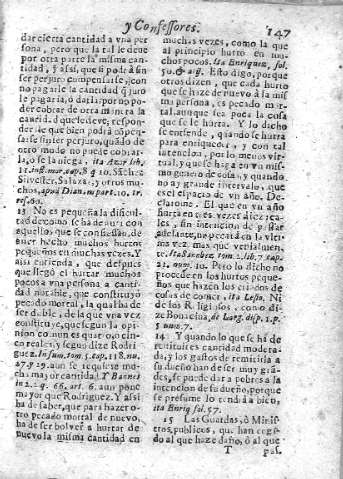 y Confessores. 147
dar cierta cantidad a vna per
sona, pero que la tal le deue
por otra parte la misma can-
tidad, y assi, que si podrà sin
ser perjuro compensarse, i con
no pagarle la cantidad q̃ juro
le pagaria, ò darla: por no po-
der cobrar de otra manera la
cantid. que le deue, respon-
der se que bien podrà cõpe-
sarse sin ser perjuro, quando de
otro modo no puede cobrar-
la, o se la niega, ita Azor lib.
11. inst. mor. cap. 8 q 10. Sãchez
Silvester, Salaza. y otros mu-
chos, apud Dian. m part. 10. tr.
res. 60.
13 No es pequeña la dificul-
tad de como se ha de auer con
aquellos, que se confiessan, de
auer hecho muchos hurtos
pequeños en muchas vezes. Y
assi entienda, que despues
que llegò el hurtar muchos
pocos a vna persona a canti-
dad notable, que constituyò
pecado mortal, la qual ha de
ser doble, de la que vna vez
constituye, que segun la opi-
nion comun es quatro, o cin-
co reales, y segun dize Rodri-
guez. In sum. tom. 3. cap. 118. nu.
aun se requiere mu-
cha mayor cantidad. Y Banes
in 2. 2. q. 66. art. 6. aun pone
mayor que Rodriguez. Y assi
ha de saber, que para hazer o-
tro pecado mortal de nuevo,
ha de ser bolver a hurtar de
nuevo la misma cantidad en
muchas vezes, como la que
al principio hurtò en mu-
chos pocos. Ita Enriquez, fol.
50. & alij. Esto digo, porque
otros dizen, que cada hurto
que se haze de nuevo à la mis
ma persona, es pecado mor-
tal, aunque sea poca la cosa
que se le hurta. Y lo dicho
se entiende, quando se hurta
para enriquecer, y con tal
intencion, por lo menos vir-
tual, y que se haga en vn mis-
mo genero de cosa, y quando
no ay grande intervalo, que
es el espacio de vn año. De-
clarome. El que en vn año
hurta en tres vezes diez rea-
les, sin intencion de passar
adelante, no pecarà en la vlti-
ma vez mas que venialmen-
te. Ita Sanchez tom. 2. lib. 7. cap.
21. num. 10. Pero lo dicho no
procede en los hurtos peque-
ños que hazen los criados de
cosas de comer, ita Lesio. Ni
de los Religiosos, como di-
ze Bonacina, de Larg. disp. 1. p.
5 num. 7.
14 Y quando lo que se hà de
restituir es cantidad modera-
da, y los gastos de remitirla a
su dueño han de ser muy gran-
des, se puede dar a pobres a la
intencion de su dueño, porque
se presume lo tendrà a bien,
ita Enriq fol. 57.
15 Las Guardas, ò Minis-
tros publicos, que han cogi-
do al que haze daño, ò al que
T pas.